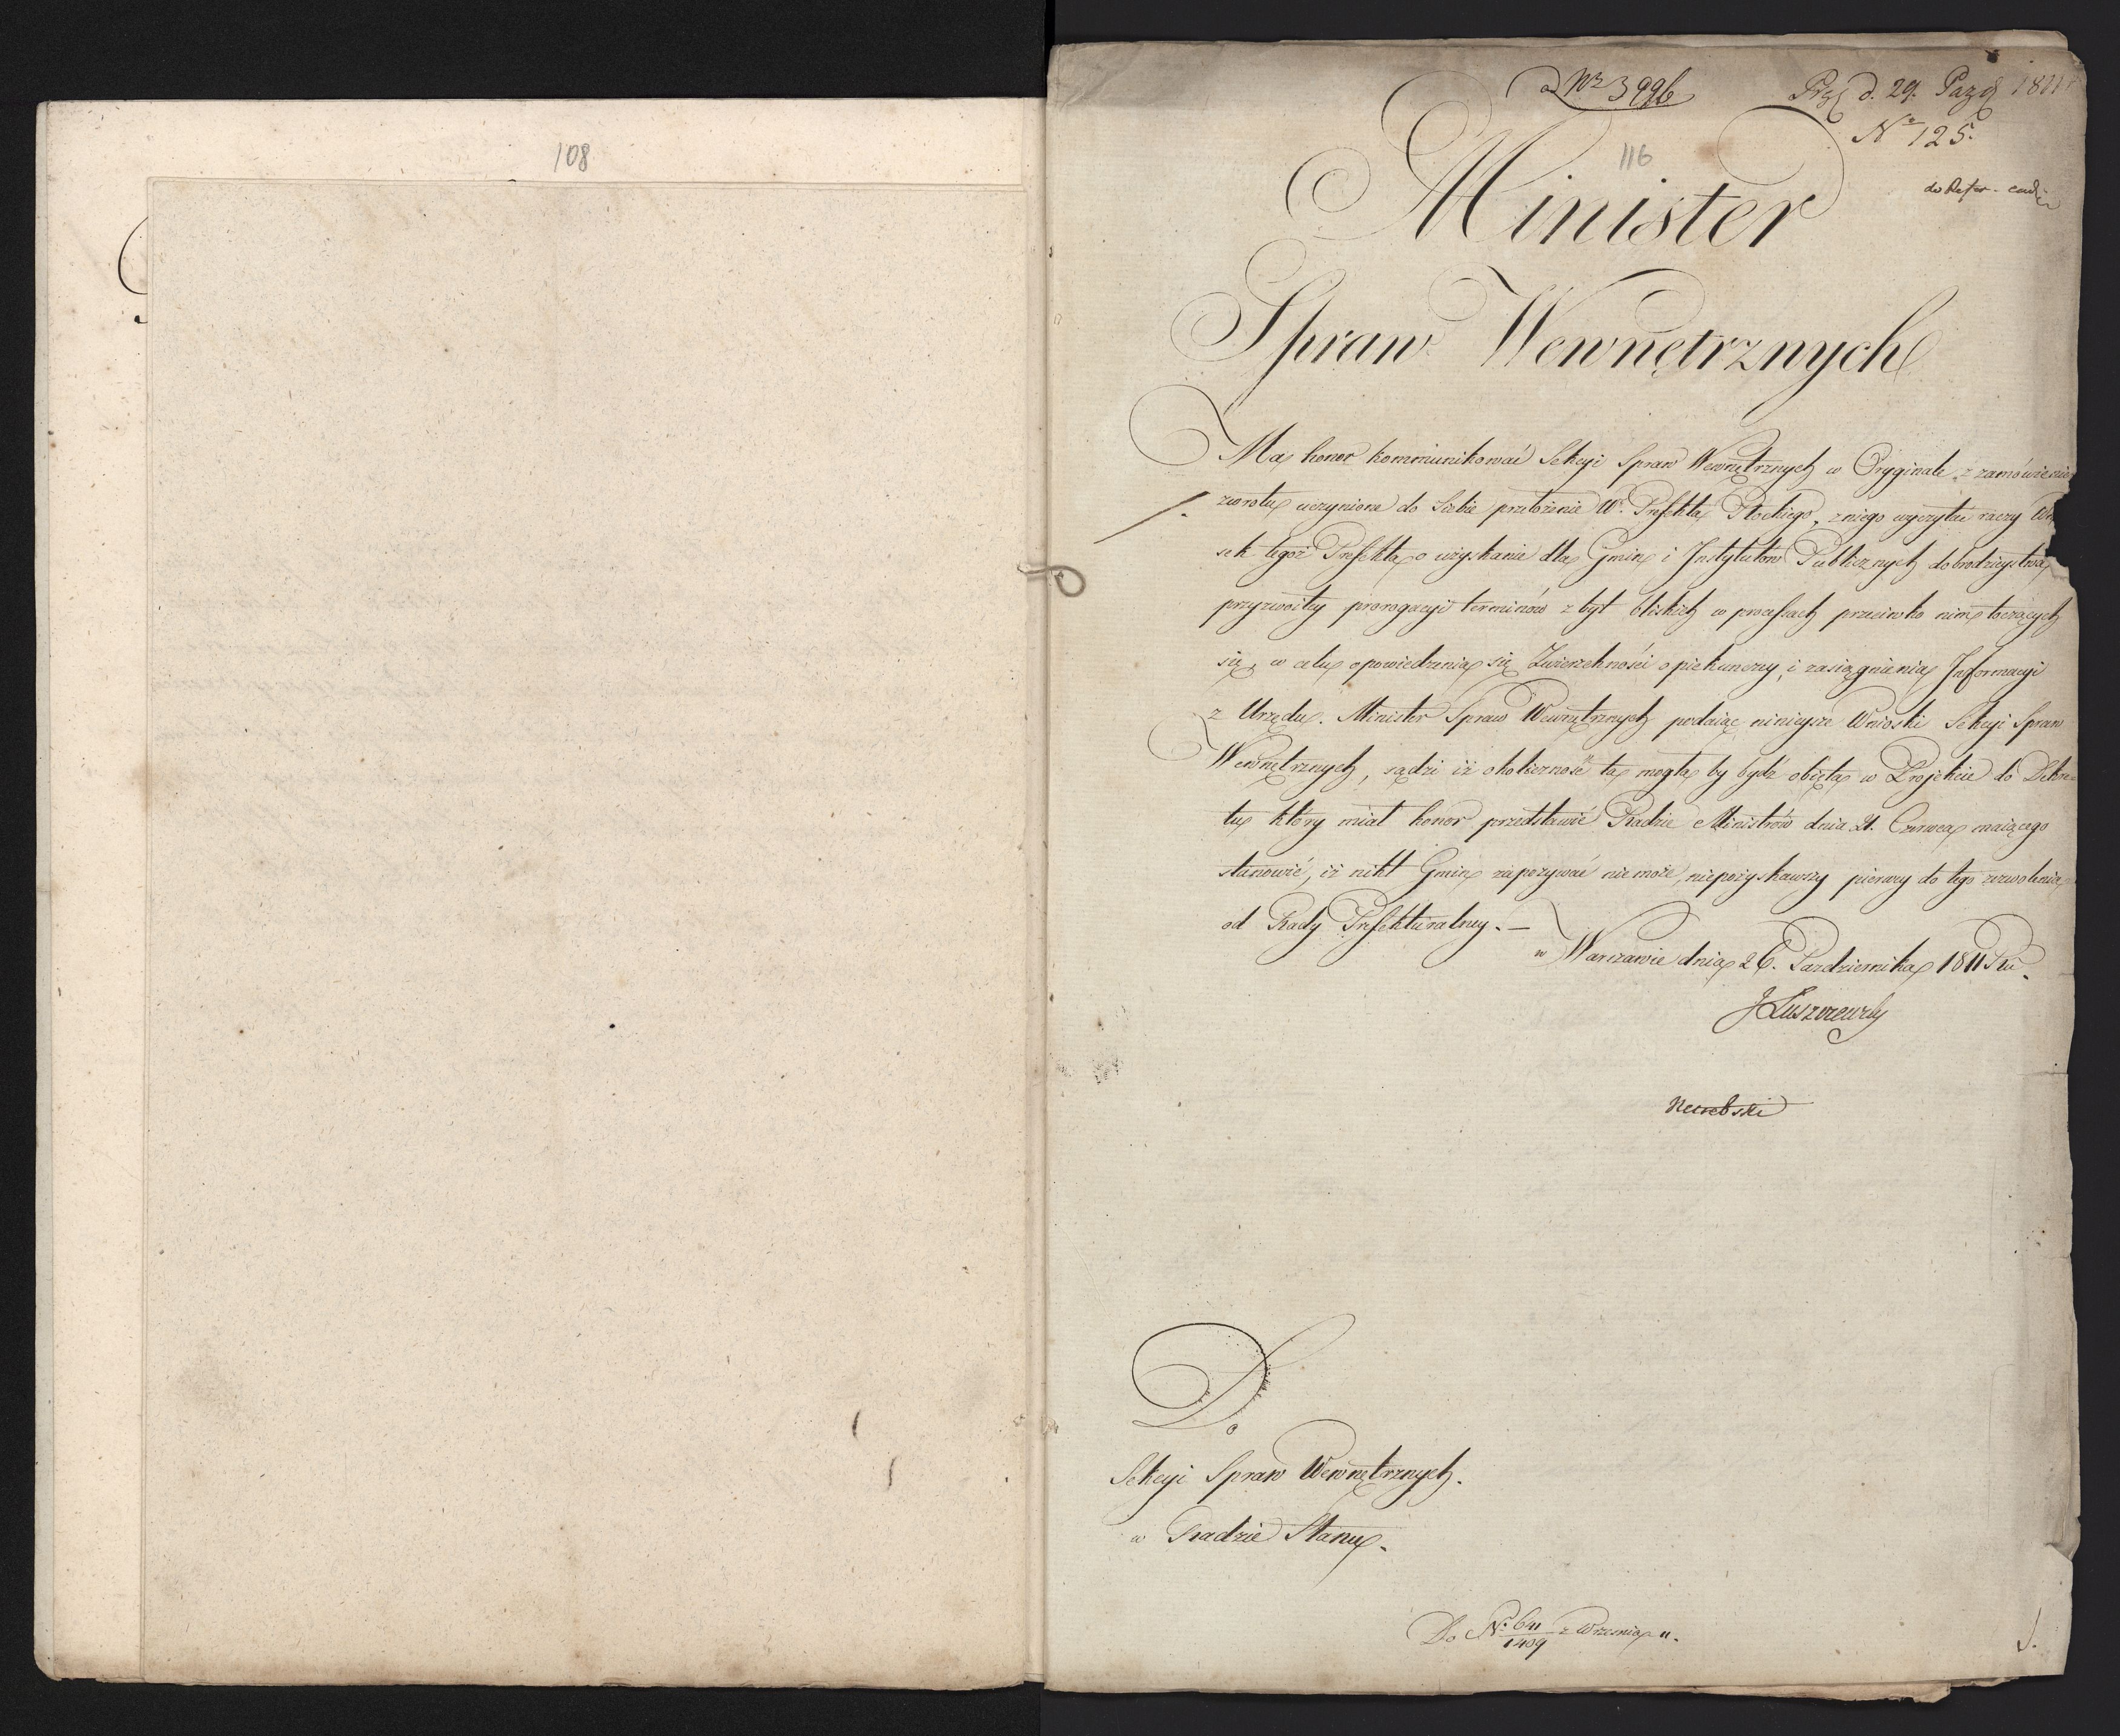 108
ad Nr 3996
Prz. d. 29. Paźd. 1811
No 125.
116
do Refer.
Minister
Spraw Wewnętrznych
Ma honor kommunikować Sekcyi Spraw Wewnętrznych w Oryginale z zamówienie
1. zwrotu uczynione do Siebie przełożenie W. Prefekta Płockiego, z niego wyczytać raczy Wn
sek tegoż Prefekta o uzyskanie dla Gmin i Instytutów Publicznych dobrodzieystwa
przyzwoitey prorogacyi terminów zbyt bliskich w processach przeciwko nim toczących
się, w celu opowiedzenia się Zwierzchności opiekuńczey, i zasiągnienia Informacyi
z Urzędu. Minister Spraw Wewnętrznych podaiąc ninieysze Wnioski Sekcyi Spraw
Wewnętrznych, sądzi iż okoliczność ta mogła by bydź obięta w Projekcie do Dekre-
tu który miał honor przedstawić Radzie Ministrów dnia 21. Czerwca maiącego
stanowić, iż nikt Gmin zapozywać nie może, niepozyskawszy pierwey do tego zezwolenia
od Rady Prefekturalney. —
w Warszawie dnia 26. Pazdziernika 1811 Ru.
J Łuszczewsky
Do
Sekcyi Spraw Wewnętrznych.
w Radzie Stanu.
Do No 611/1409 z Września 11.